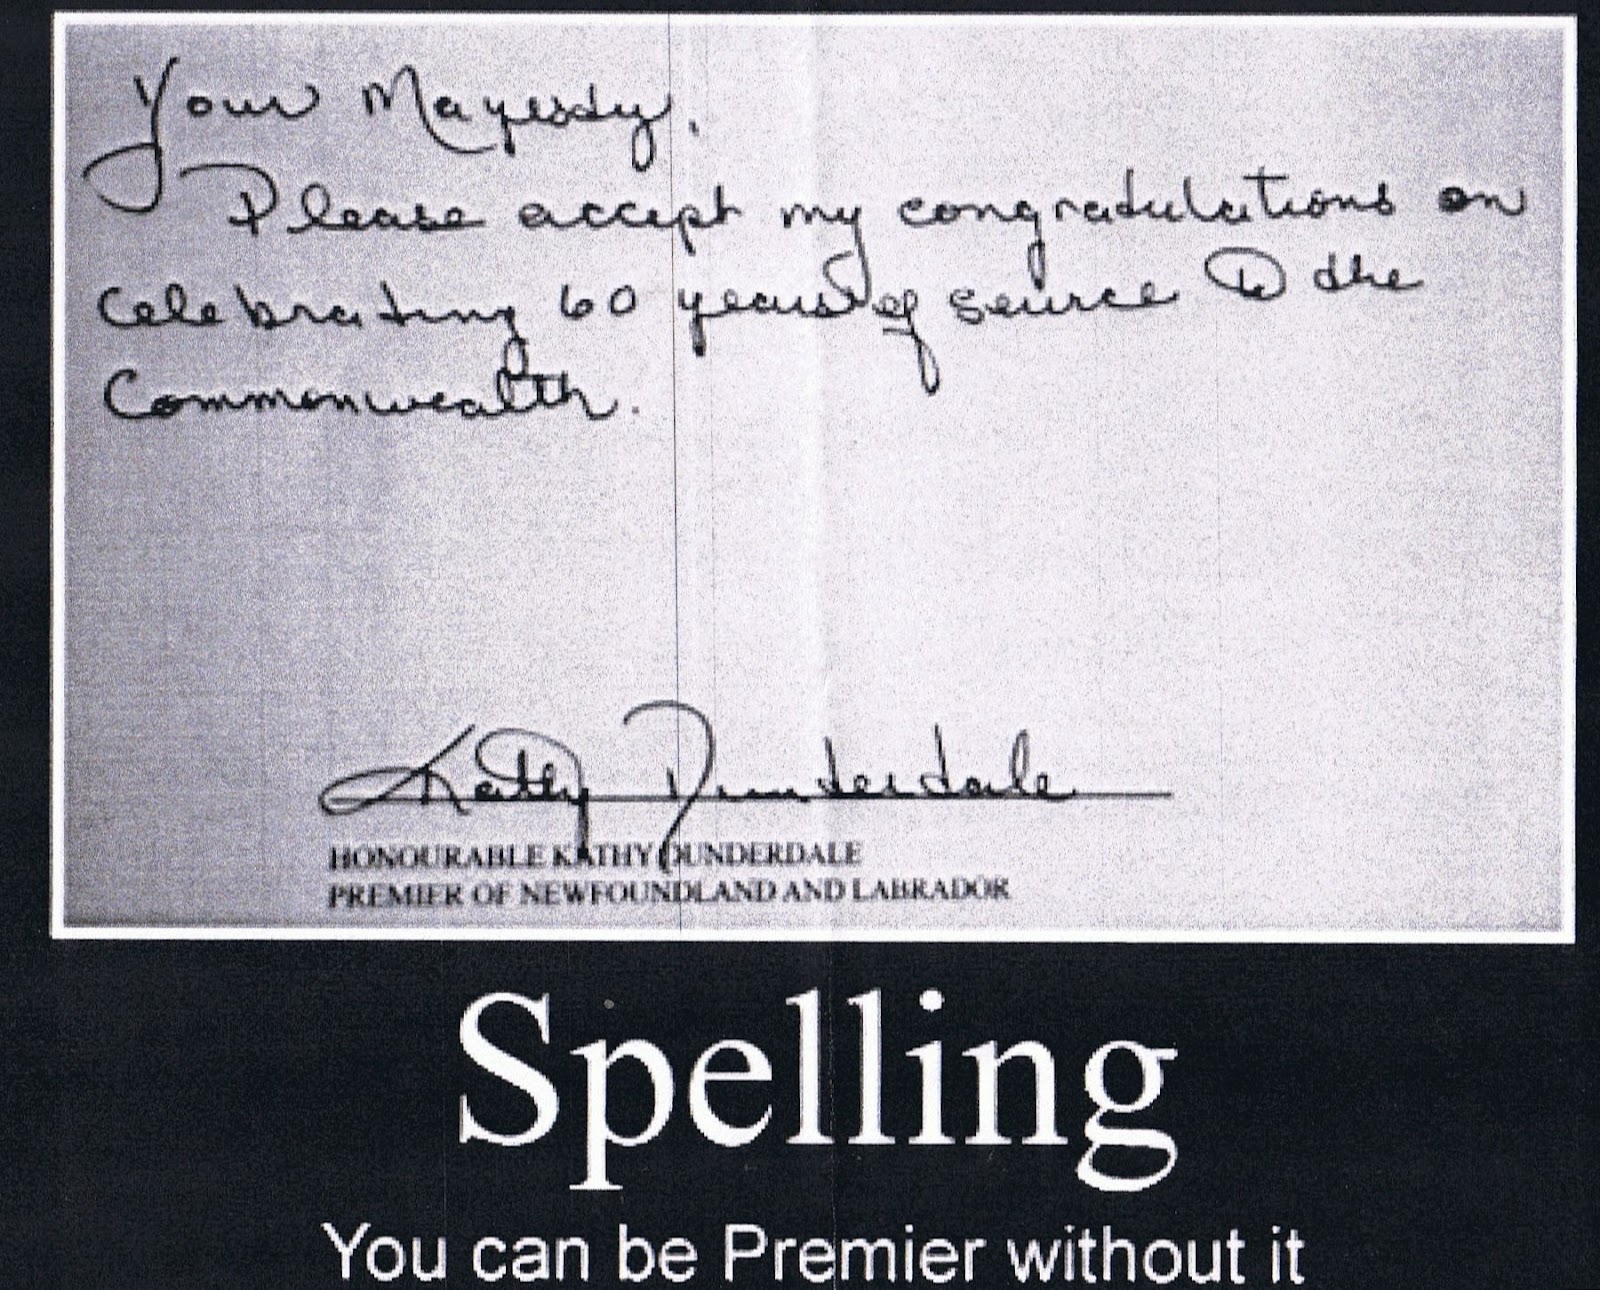 Your Mayesty,
Please accept my congradulations on
celebrating 60 years of service to the
Commonwealth.
Kathy Dunderdale
HONOURABLE KATHY DUNDERDALE
PREMIER OF NEWFOUNDLAND AND LABRADOR
Spelling
You can be Premier without it